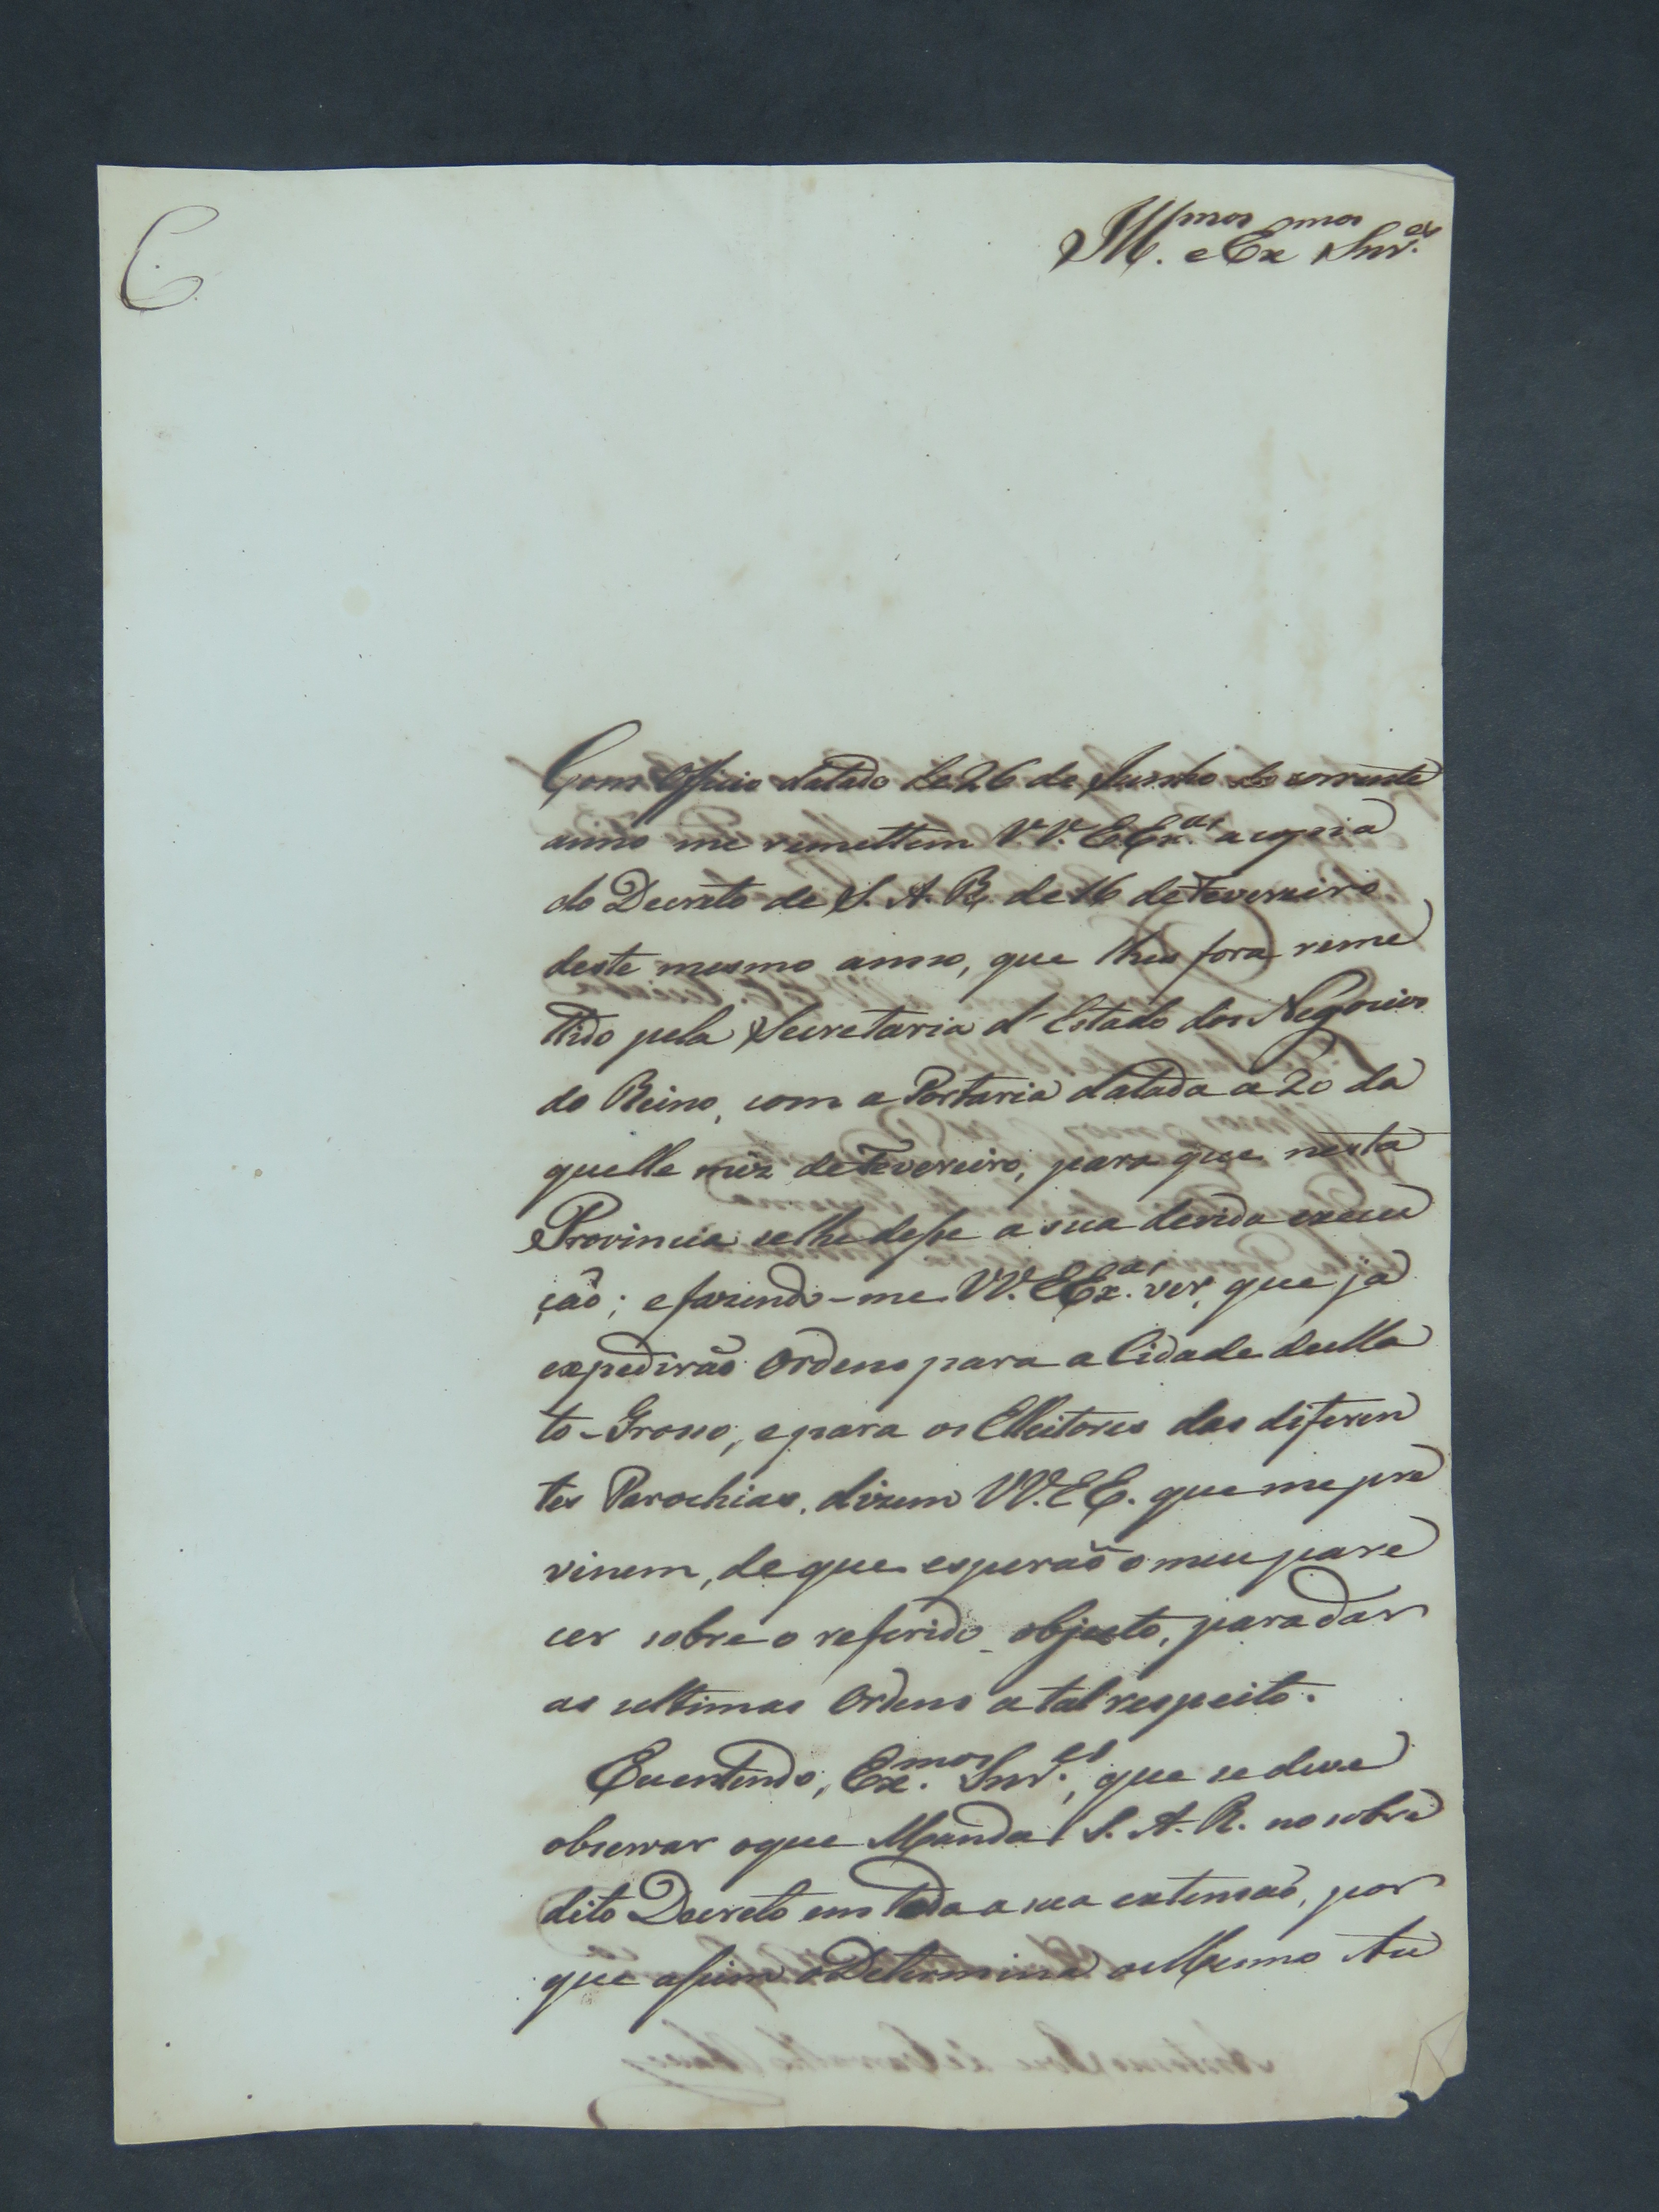 C
Ill.mos e Ex.mos Snr.es
Com Officio datado de 26 de Junho do corrente
anno me remettem V.V. E.Ex.as a copia
do Decreto de S. A. R. de 16 de Fevereiro
deste mesmo anno, que lhes fora reme
ttido pela Secretaria d'Estado dos Negocios
do Reino, com a Portaria datada a 20 da
quelle mêz de Fevereiro, para que nesta
Provincia se lhe desse a sua devida execu
ção; e fazendo-me VV. EEx.as ver, que já
expedirão Ordens para a Cidade de Ma
to-Grosso, e para os Elleitores das diferen
tes Parochias, dizem VV. EE. que me pre
vinem, de que esperão o meu pare
cer sobre o referido objecto, para dar
as ultimas Ordens a tal respeito.
Eu entendo, Ex.mos Snr.es, que se deve
observar o que Manda S. A. R. no sobre
dito Decreto em toda a sua extensão, por
que assim o Determina o Mesmo Au